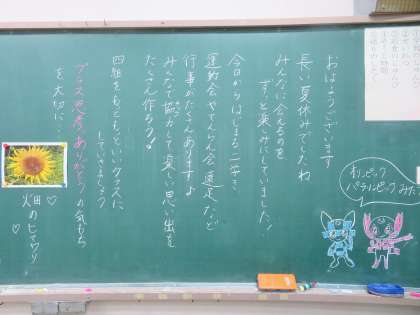 おはようございます
長い夏休みでしたね
みんなに会えるのを
ずっと楽しみにしていました！
今日からはじまる二学き、
運動会やさんさん会遠足など
行事がたくさんありますよ
みんなで協力して楽しい思い出を
たくさん作ろう！
四組をもっともっといいクラスに
していきましょう
プラス思考、ありがとうの気もち
を大切に…
畑のヒマワリ
オリンピック
パラリンピック みた？